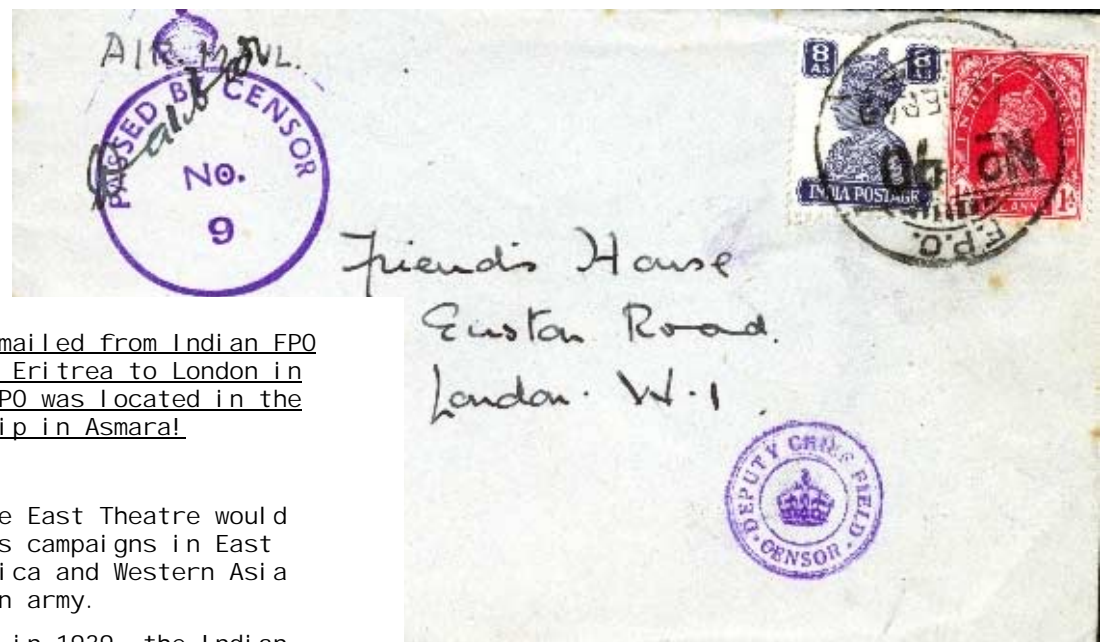 AIR MAIL.
PASSED BY CENSOR
No.
9
8 AS
8 AS
INDIA POSTAGE
INDIA POSTAGE
1A
ANNA
1A
No 40
F.P.O.
Friends House
Euston Road.
London. W.1.
DEPUTY CHIEF FIELD
CENSOR
mailed from Indian FPO
Eritrea to London in
PO was located in the
ip in Asmara!
e East Theatre would
s campaigns in East
ica and Western Asia
n army.
in 1939, the Indian